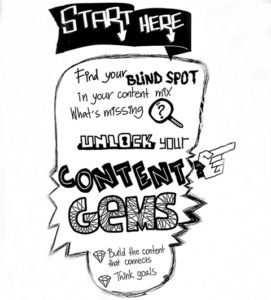 START HERE
Find your BLIND SPOT
in your content mix
What's missing ?
UNLOCK your
CONTENT
GEMS
Build the content
that connects
Think goals